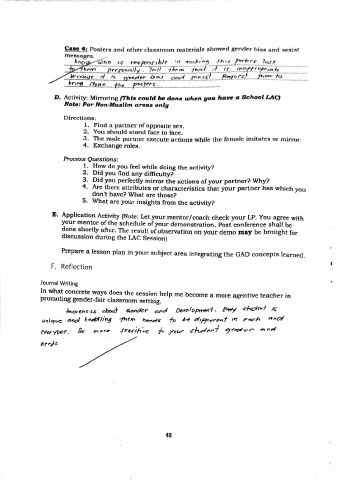 Case 4: Posters and other classroom materials showed gender bias and sexist
messages.
know who is responsible in making this posters. Talk
to them personally. Tell them that it is inappropriate
because it is gender bias and sexist. Request them to
bring down the posters.
D. Activity: Mirroring (This could be done when you have a School LAC)
Note: For Non-Muslim areas only
Directions:
1. Find a partner of opposite sex.
2. You should stand face to face.
3. The male partner execute actions while the female imitates or mirror.
4. Exchange roles.
Process Questions:
1. How do you feel while doing the activity?
2. Did you find any difficulty?
3. Did you perfectly mirror the actions of your partner? Why?
4. Are there attributes or characteristics that your partner has which you
don't have? What are those?
5. What are your insights from the activity?
E. Application Activity (Note: Let your mentor/coach check your LP. You agree with
your mentor of the schedule of your demonstration. Post conference shall be
done shortly after. The result of observation on your demo may be brought for
discussion during the LAC Session)
Prepare a lesson plan in your subject area integrating the GAD concepts learned.
F. Reflection
Journal Writing
In what concrete ways does the session help me become a more agentive teacher in
promoting gender-fair classroom setting.
Awareness about Gender and Development. Every student is
unique and handling them needs to be different in each and
everyone. Be more sensitive to your student gender and
needs.
48